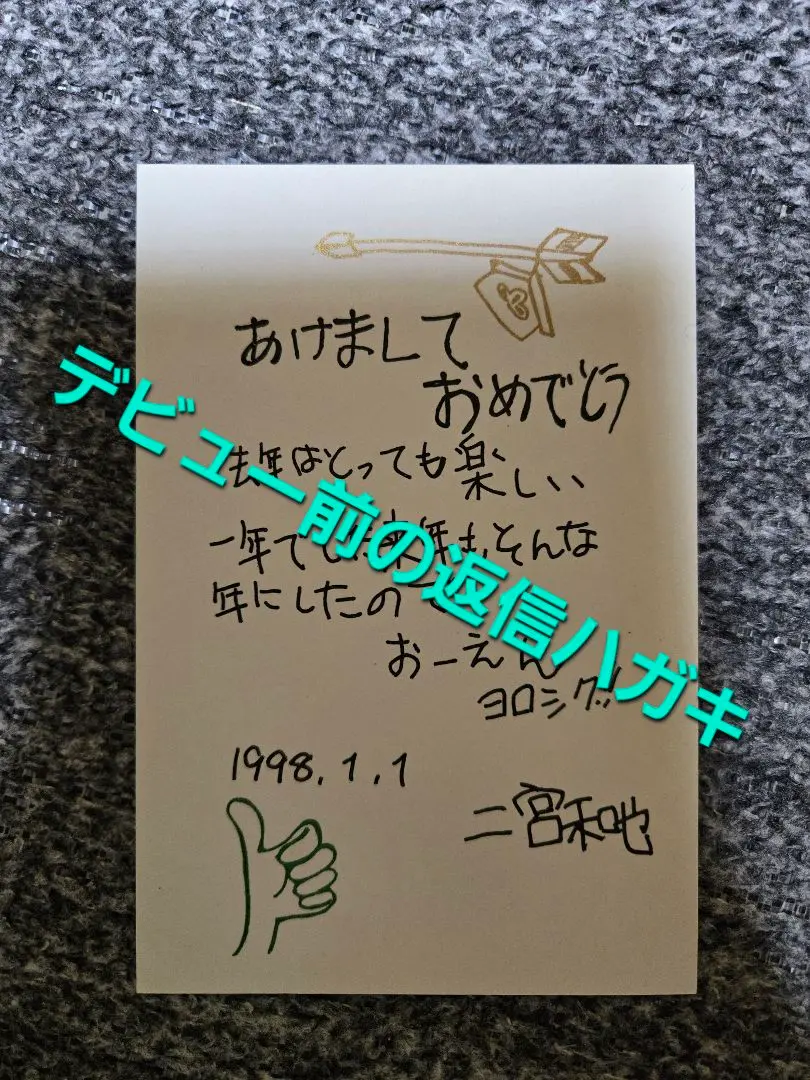 あけまして
おめでとう
去年はとっても楽しい
一年でした来年もそんな
年にしたので
おーえん
ヨロシクッ
1998.1.1
二宮和也
デビュー前の返信ハガキ